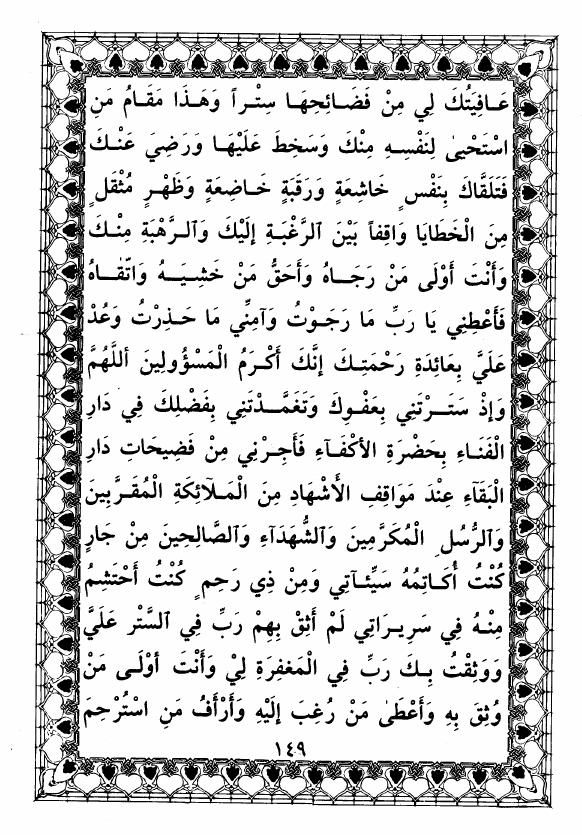 عَـافِيَتُكَ لِي مِنْ فَضَـائِحِهَـا سِتْـراً وَهَـذَا مَقَـامُ مَنِ
اسْتَحْيىٰ لِنَفْسِـهِ مِنْكَ وَسَخِطَ عَلَيْهَا وَرَضِيَ عَنْـكَ
فَتَلَقَّاكَ بِنَفْسٍ خَاشِعَةٍ وَرَقَبَةٍ خَاضِعَةٍ وَظَهْرٍ مُثْقَلٍ
مِنَ الْخَطَايَا وَاقِفاً بَيْنَ الرَّغْبَـةِ إِلَيْكَ وَالـرَّهْبَةِ مِنْـكَ
وَأَنْتَ أَوْلَى مَنْ رَجَـاهُ وَأَحَقُّ مَنْ خَشِيَـهُ وَاتَّقَـاهُ
فَأَعْطِنِي يَا رَبِّ مَا رَجَـوْتُ وَآمِنِّي مَا حَـذِرْتُ وَعُدْ
عَلَيَّ بِعَائِدَةِ رَحْمَتِـكَ إِنَّكَ أَكْـرَمُ الْمَسْؤُولِينَ أَللَّهُمَّ
وَإِذْ سَتَـرْتَنِي بِعَفْـوِكَ وَتَغَمَّـدْتَنِي بِفَضْلِكَ فِي دَارِ
الْفَنَـاءِ بِحَضْرَةِ الأَكْفَـآءِ فَأَجِـرْنِي مِنْ فَضِيحَاتِ دَارِ
الْبَقَآءِ عِنْدَ مَوَاقِفِ الأَشْهَادِ مِنَ الْمَـلَائِكَةِ الْمُقَـرَّبِينَ
وَالرُّسُلِ الْمُكَرَّمِينَ وَالشُّهَدَآءِ وَالصَّالِحِينَ مِنْ جَارٍ
كُنْتُ أُكَاتِمُهُ سَيِّئَـاتِي وَمِنْ ذِي رَحِمٍ كُنْتُ أَحْتَشِمُ
مِنْـهُ فِي سَرِيـرَاتِي لَمْ أَثِقْ بِهِمْ رَبِّ فِي السَّتْرِ عَلَيَّ
وَوَثِقْتُ بِـكَ رَبِّ فِي الْمَغْفِرَةِ لِيْ وَأَنْتَ أَوْلَـى مَنْ
وُثِقَ بِهِ وَأَعْطَىٰ مَنْ رُغِبَ إِلَيْهِ وَأَرْأَفُ مَنِ اسْتُرْحِمَ
١٤٩